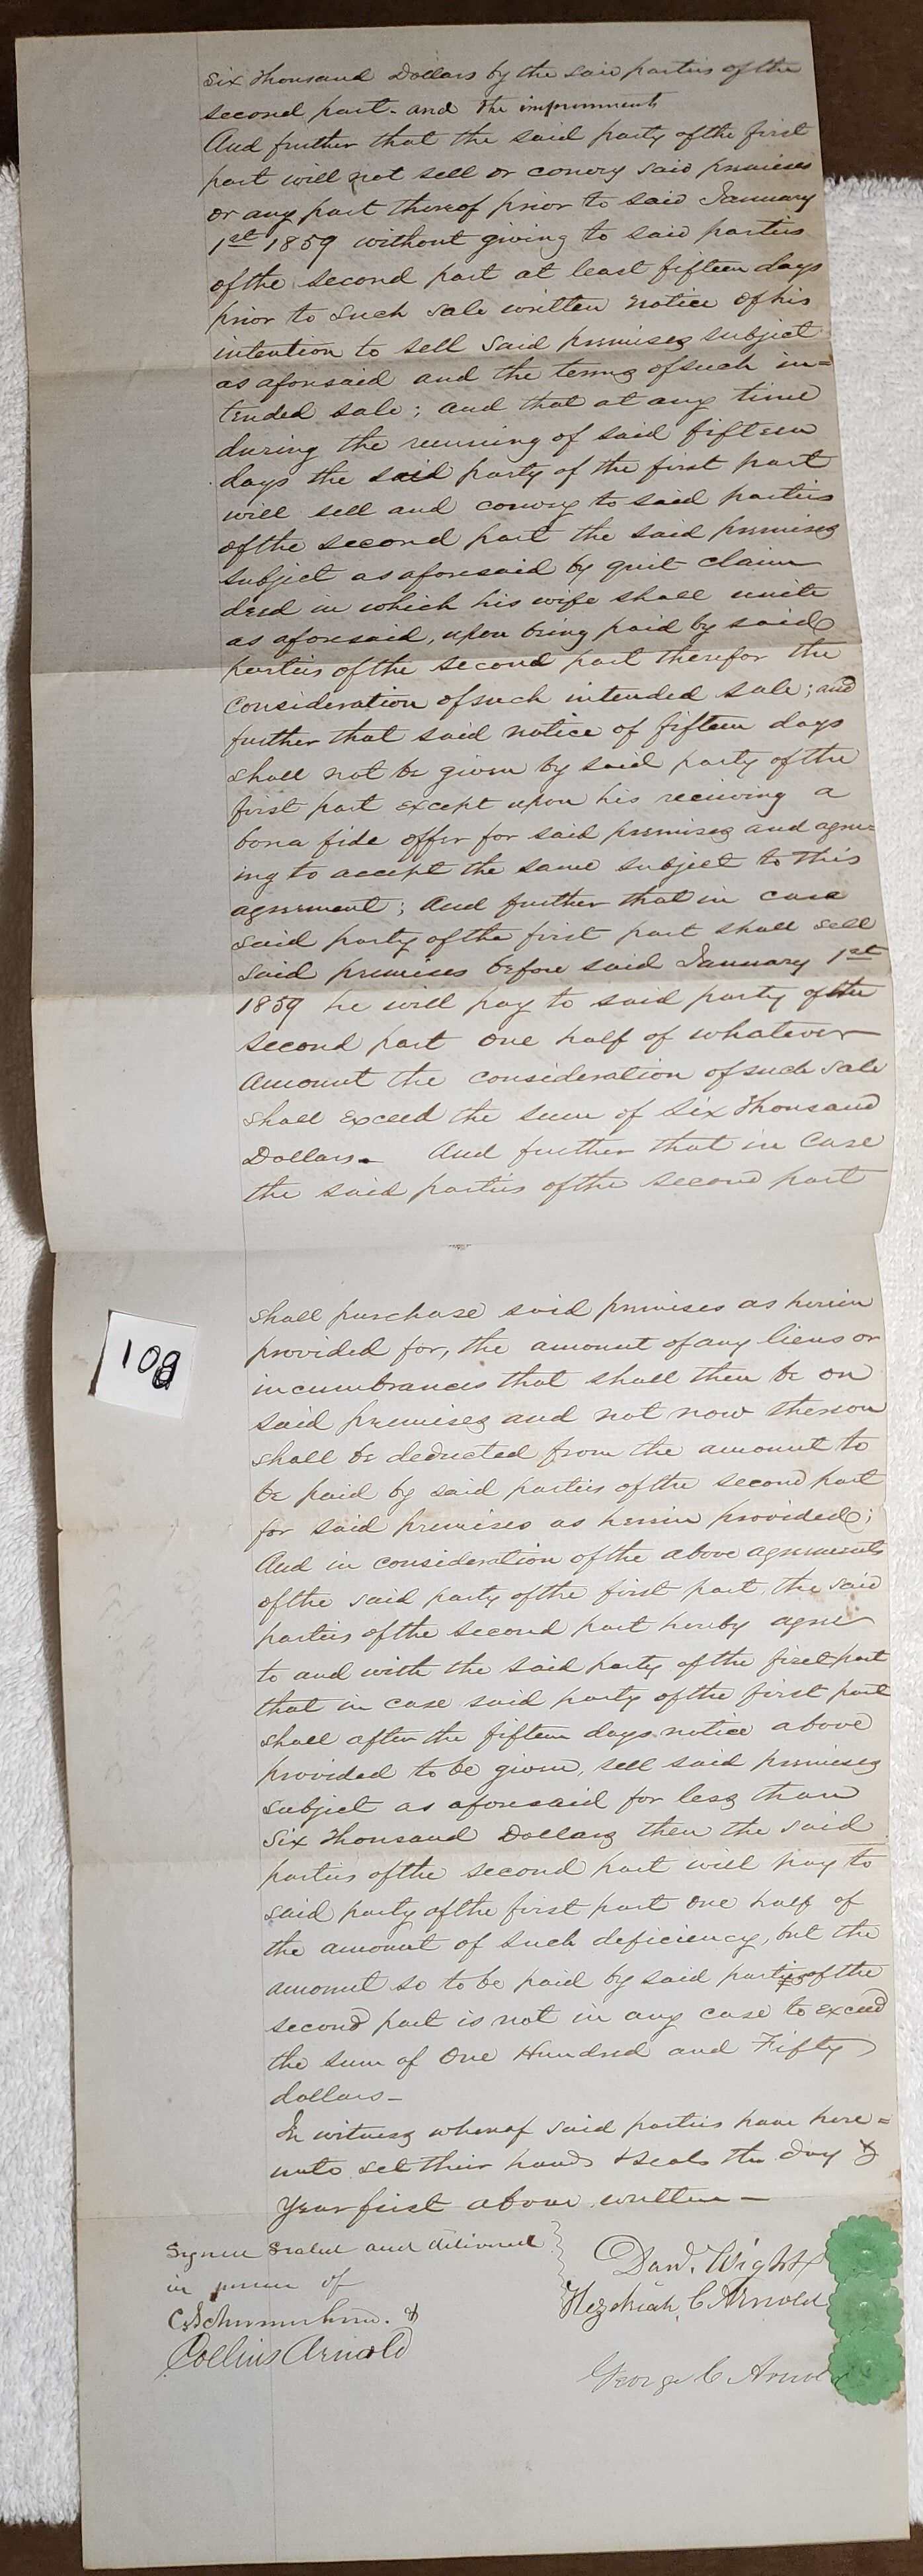 Six Thousand Dollars by the said parties of the
second part - and the improvements
And further that the said party of the first
part will not sell or convey said premises
or any part thereof prior to said January
1st 1859 without giving to said parties
of the second part at least fifteen days
prior to such sale written notice of his
intention to sell said premises subject
as aforesaid and the terms of such in=
tended sale; and that at any time
during the running of said fifteen
days the said party of the first part
will sell and convey to said parties
of the second part the said premises
subject as aforesaid by quit claim
deed in which his wife shall unite
as aforesaid, upon being paid by said
parties of the second part therefor the
consideration of such intended sale; and
further that said notice of fifteen days
shall not be given by said party of the
first part except upon his receiving a
bona fide offer for said premises and agree=
ing to accept the same subject to this
agreement; And further that in case
said party of the first part shall sell
said premises before said January 1st
1859 he will pay to said party of the
second part one half of whatever
amount the consideration of such sale
shall exceed the sum of Six Thousand
Dollars - And further that in Case
the said parties of the second part
shall purchase said premises as herein
provided for, the amount of any liens or
incumbrances that shall then be on
said premises and not now thereon
shall be deducted from the amount to
be paid by said parties of the second part
for said premises as herein provided;
And in consideration of the above agreements
of the said party of the first part, the said
parties of the second part hereby agree
to and with the said party of the first part
that in case said party of the first part
shall after the fifteen days notice above
provided to be given, sell said premises
subject as aforesaid for less than
Six Thousand Dollars then the said
parties of the second part will pay to
said party of the first part one half of
the amount of such deficiency, but the
amount so to be paid by said parties of the
second part is not in any case to exceed
the sum of One Hundred and Fifty
dollars -
In witness whereof said parties have here=
unto set their hands & seals the day &
year first above written -
Signed Sealed and delivered
in presence of
&
Collins Arnold
Danl. Wight
Hezekiah C Arnold
George C Arnold
108